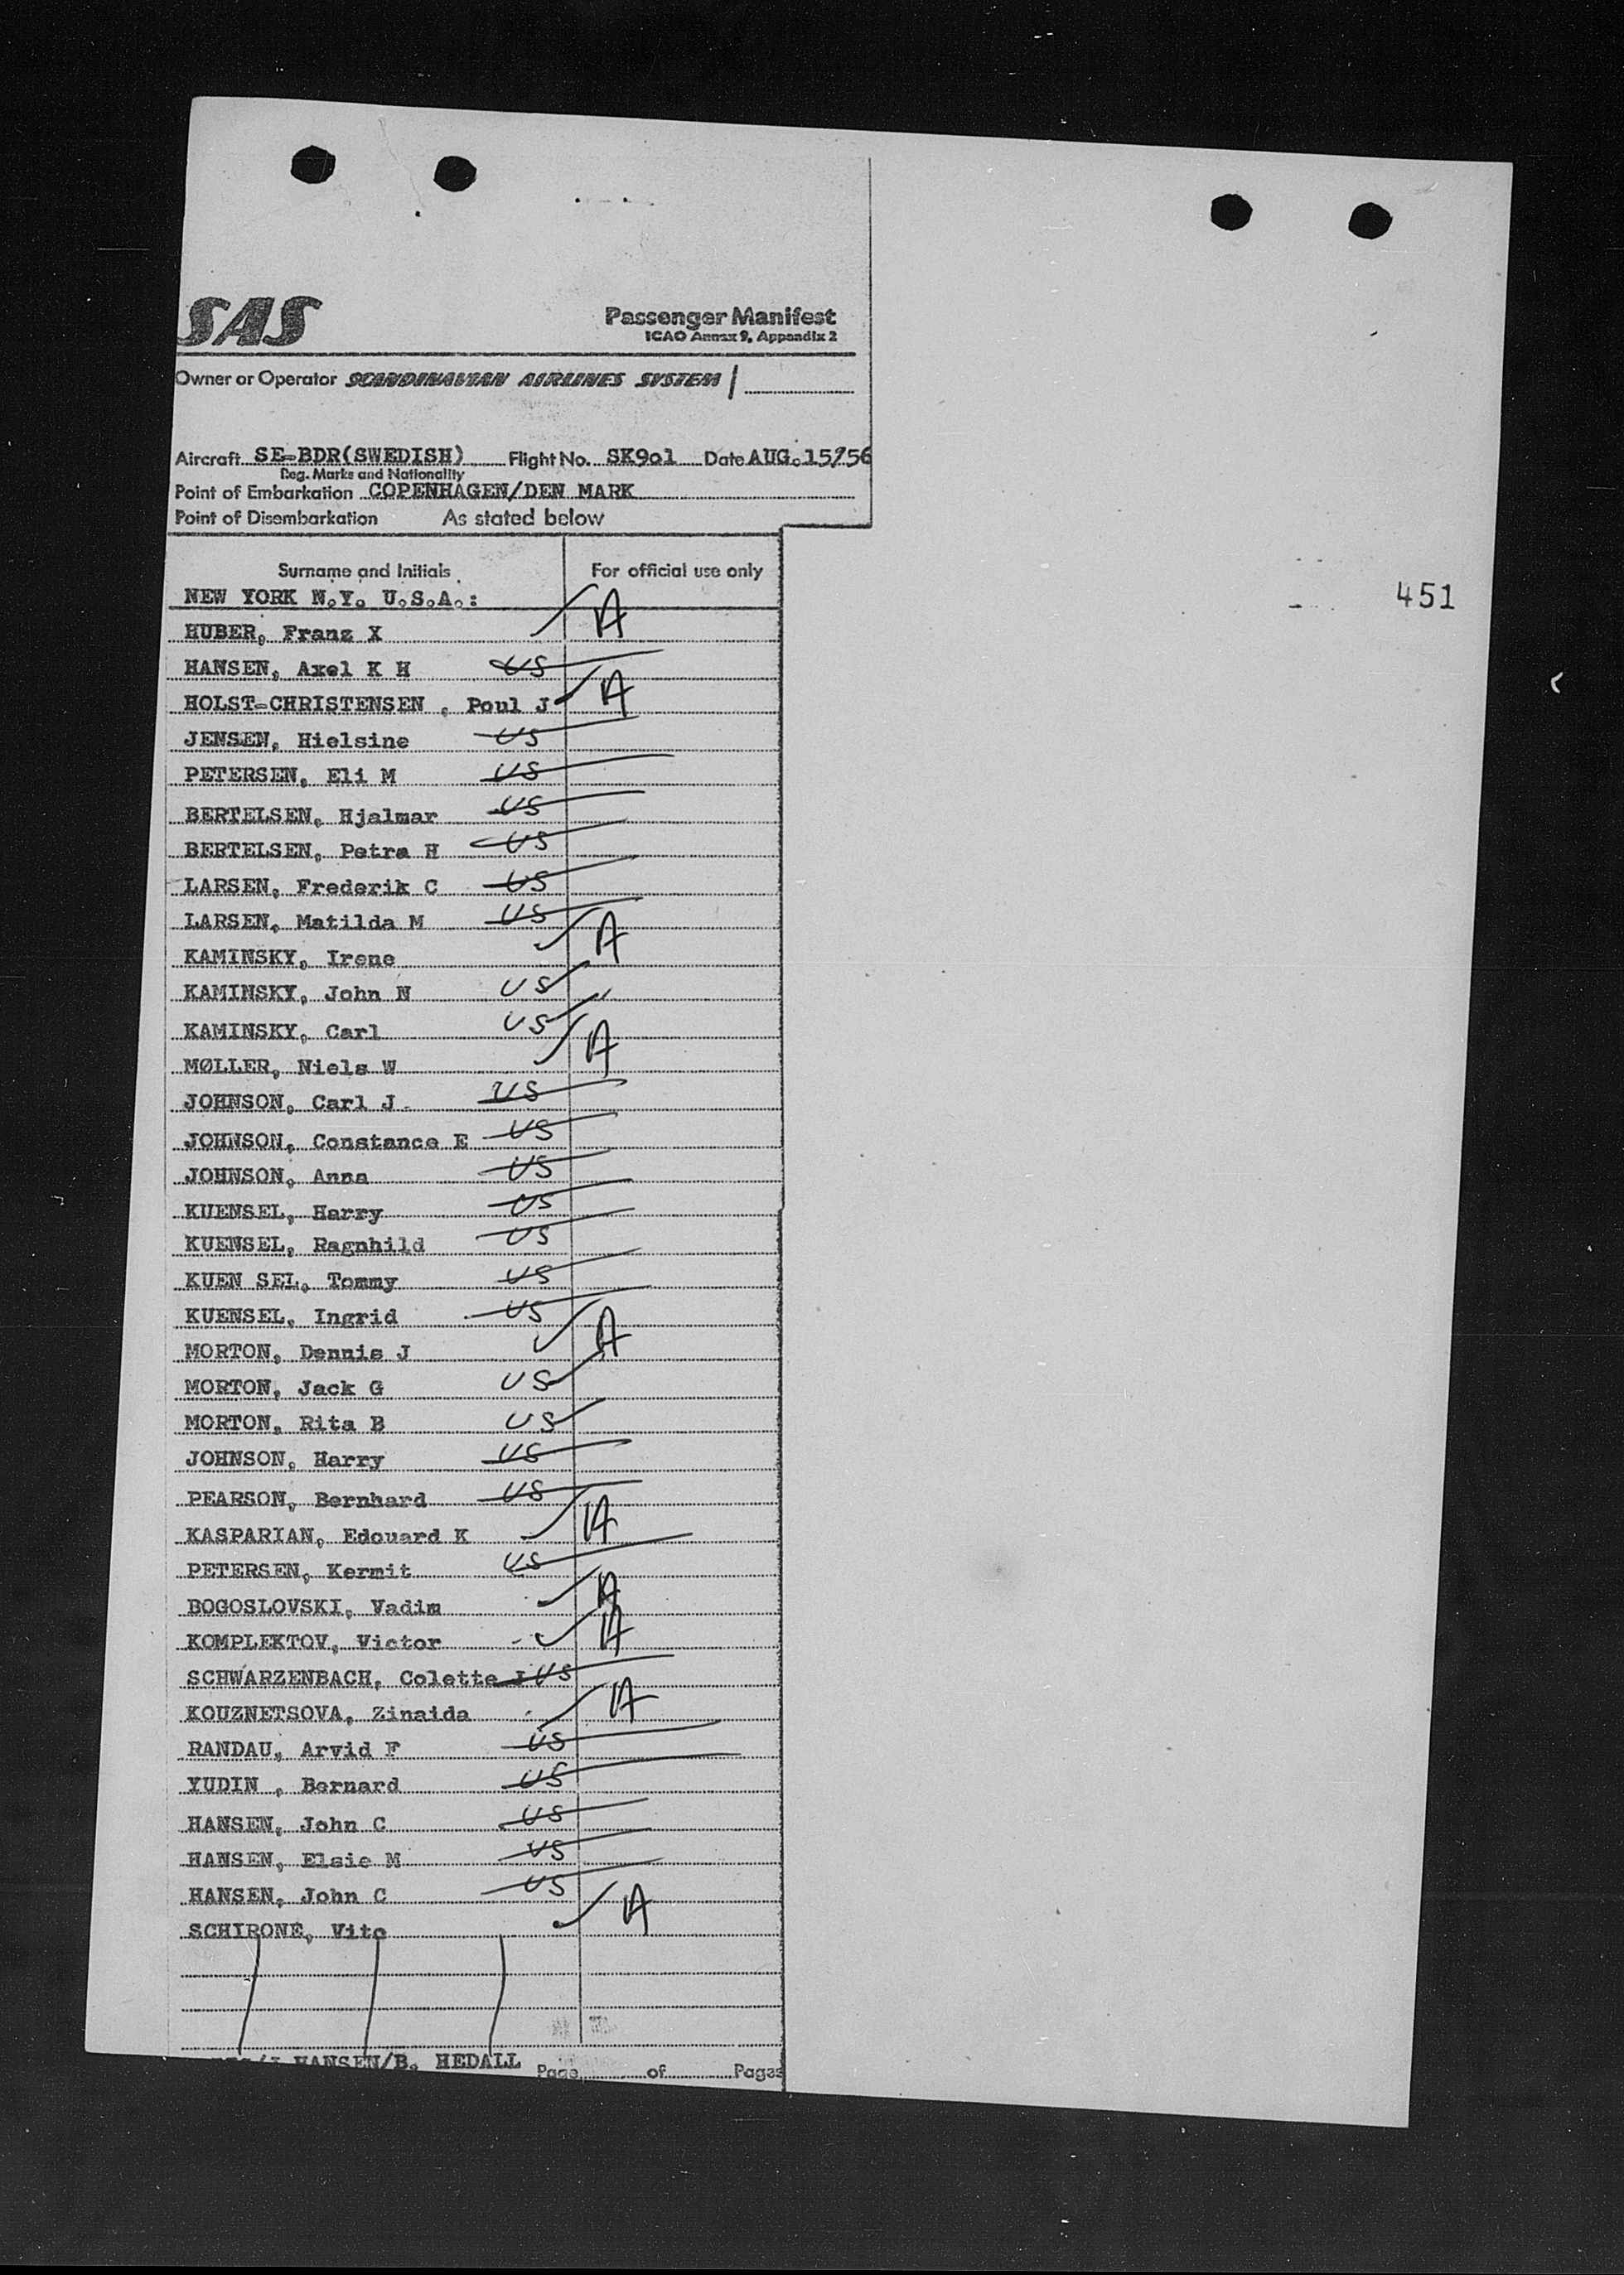 SAS
Passenger Manifest
ICAO Annex 9, Appendix 2
Owner or Operator SCANDINAVIAN AIRLINES SYSTEM /
Aircraft SE-BDR(SWEDISH) Flight No. SK901 Date AUG.15/56
Reg. Marks and Nationality
Point of Embarkation COPENHAGEN/DEN MARK
Point of Disembarkation As stated below
Surname and Initials For official use only
NEW YORK N.Y. U.S.A.:
451
HUBER, Franz X A
HANSEN, Axel K H US
HOLST-CHRISTENSEN , Poul J A
JENSEN, Hielsine US
PETERSEN, Eli M US
BERTELSEN, Hjalmar US
BERTELSEN, Petra H US
LARSEN, Frederik C US
LARSEN, Matilda M US
KAMINSKY, Irene A
KAMINSKY, John N US
KAMINSKY, Carl US
MØLLER, Niels W A
JOHNSON, Carl J US
JOHNSON, Constance E US
JOHNSON, Anna US
KUENSEL, Harry US
KUENSEL, Ragnhild US
KUEN SEL, Tommy US
KUENSEL, Ingrid US
MORTON, Dennis J A
MORTON, Jack G US
MORTON, Rita B US
JOHNSON, Harry US
PEARSON, Bernhard US
KASPARIAN, Edouard K A
PETERSEN, Kermit US
BOGOSLOVSKI, Vadim A
KOMPLEKTOV, Victor A
SCHWARZENBACH, Colette J US
KOUZNETSOVA, Zinaida A
RANDAU, Arvid F US
YUDIN , Bernard US
HANSEN, John C US
HANSEN, Elsie M US
HANSEN, John C US
SCHIRONE, Vito A
HANSEN/B. HEDALL Page of Pages